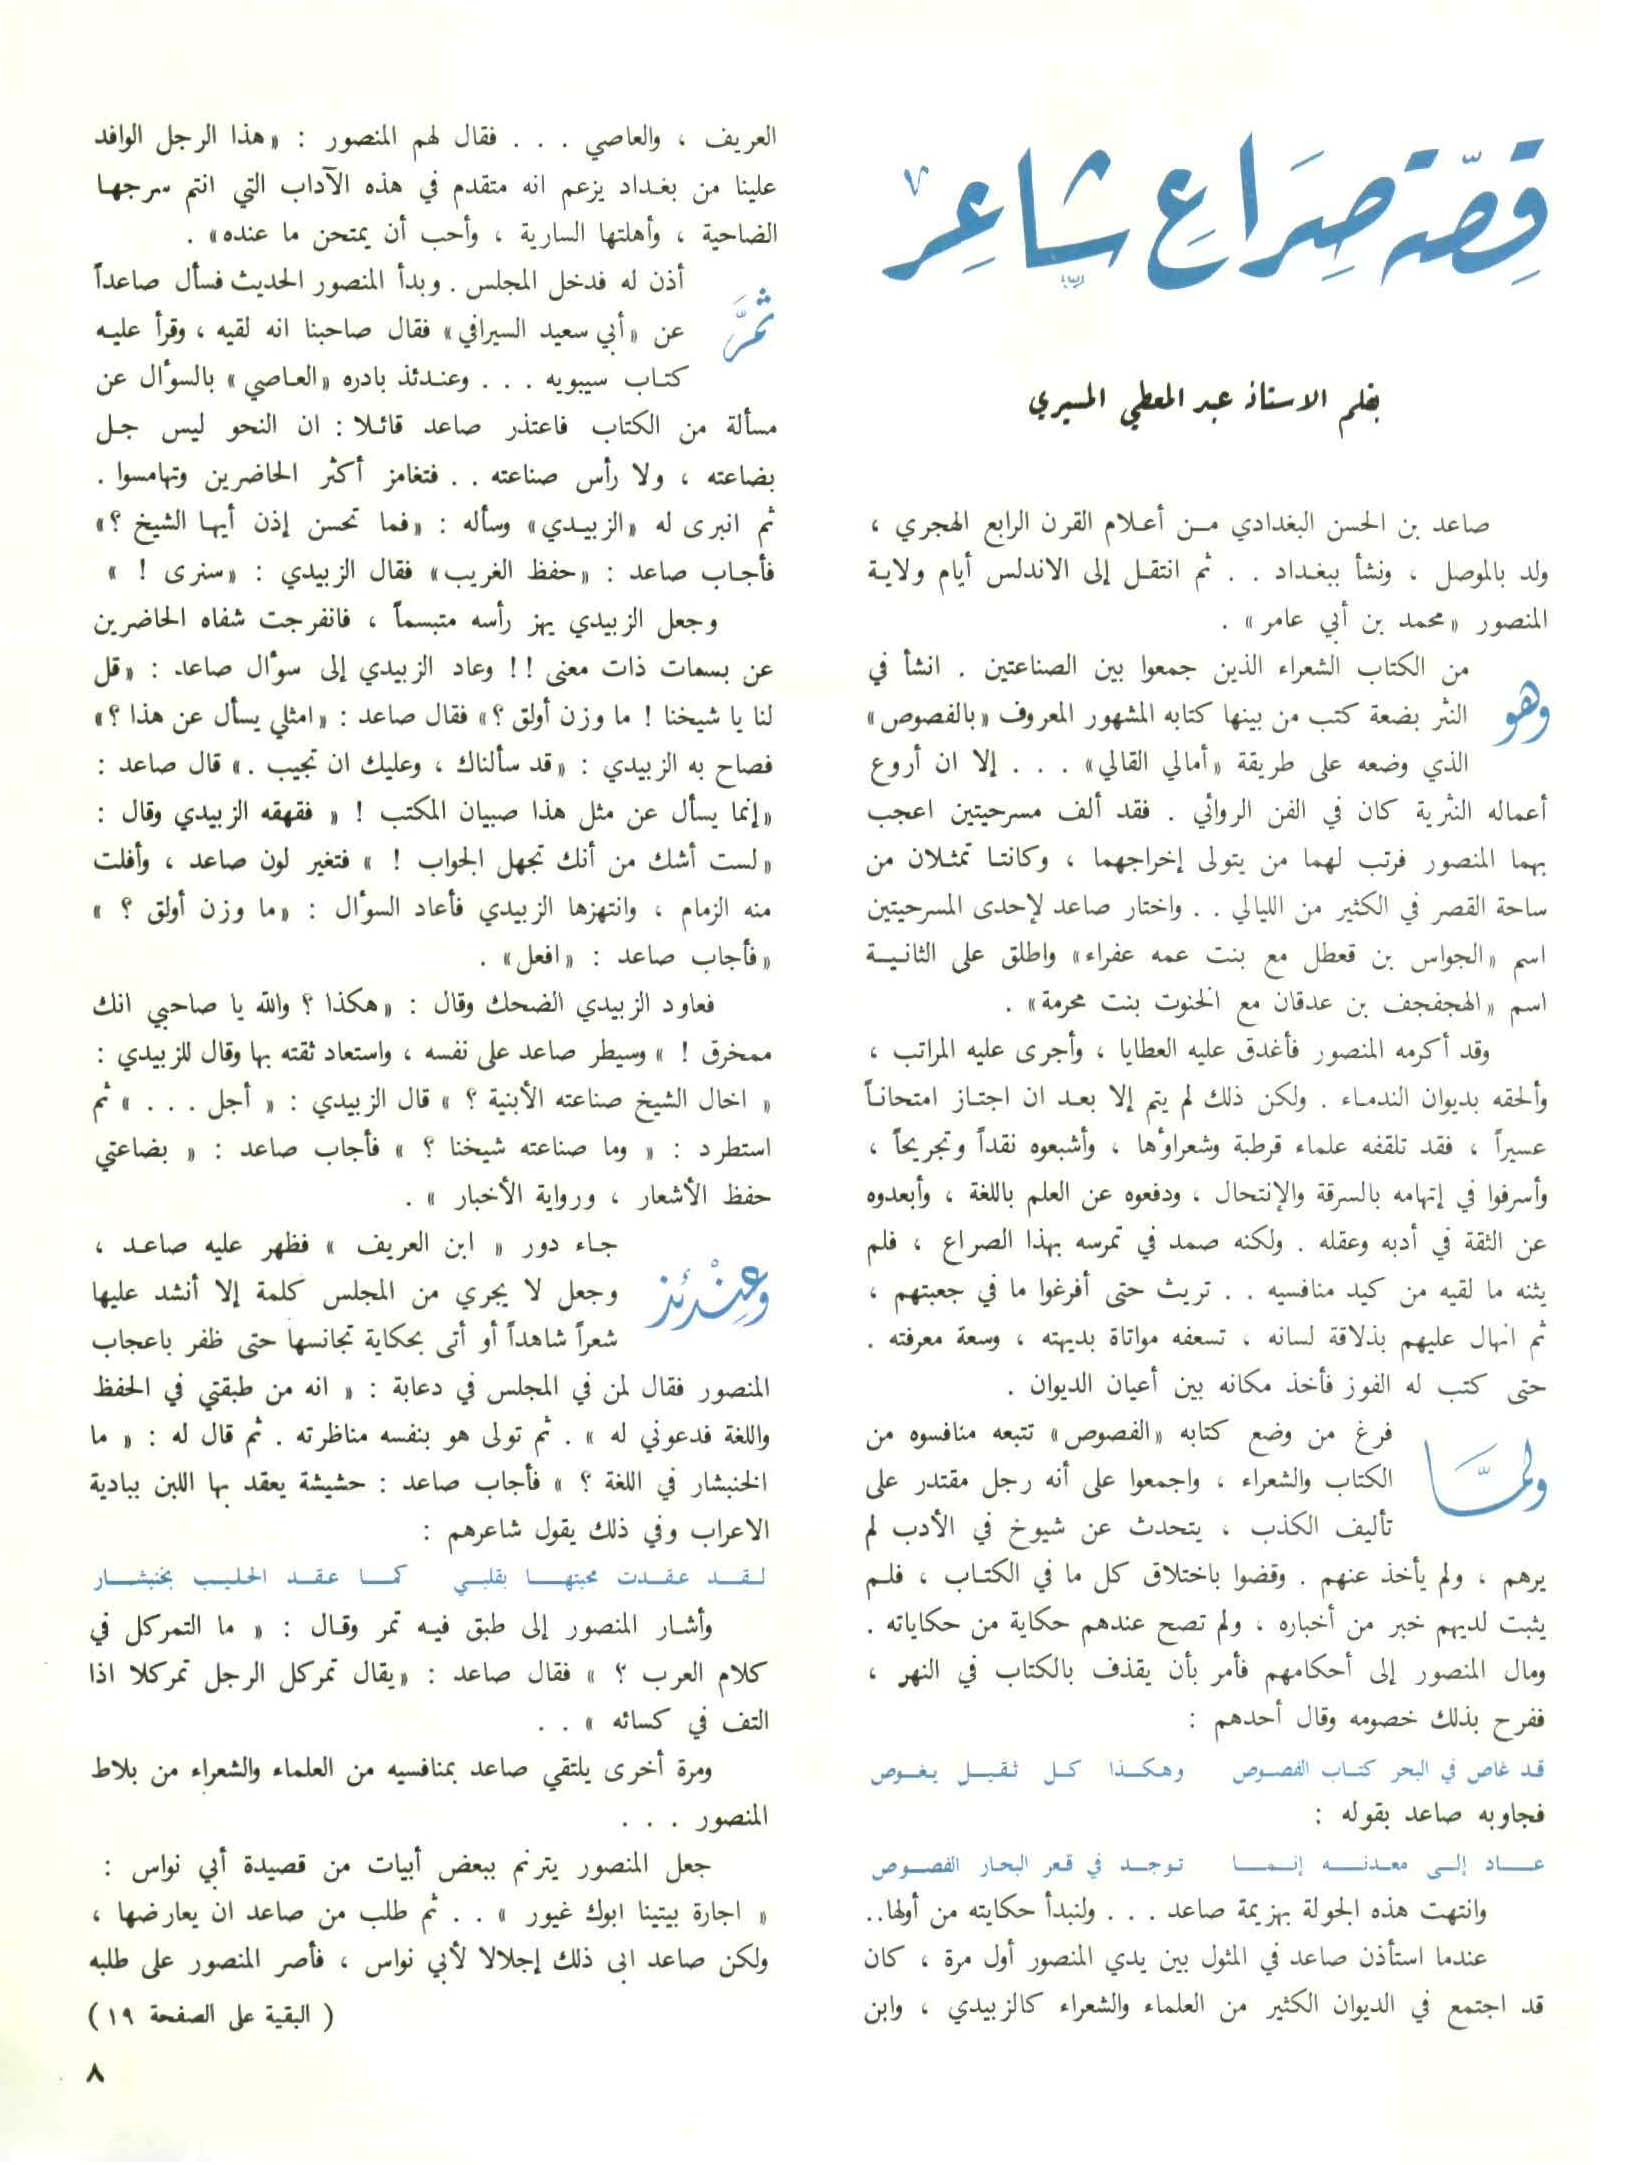 قصّة صِرَاعِ شَاعِر
بقلم الاستاذ عبد المعطي المسيري
صاعد بن الحسن البغدادي مـن أعـلام القرن الرابع الهجري ،
ولد بالموصل ، ونشأ ببغـداد . . ثم انتقـل إلى الاندلس أيام ولايـة
المنصور «محمد بن أبي عامر» .
وهو من الكتاب الشعراء الذين جمعوا بين الصناعتين . انشأ في
النثر بضعة كتب من بينها كتابه المشهور المعروف «بالفصوص»
الذي وضعه على طريقة «أمالي القالي» . . . إلا ان أروع
أعماله النثرية كان في الفن الروائي . فقد ألف مسرحيتين اعجب
بهما المنصور فرتب لهما من يتولى إخراجهما ، وكانتـا تمثـلان من
ساحة القصر في الكثير من الليالي . . واختار صاعد لإحدى المسرحيتين
اسم «الجواس بن قعطل مع بنت عمه عفراء» واطلق على الثانيـة
اسم «الهجفجف بن عدقان مع الخنوت بنت محرمة» .
وقد أكرمه المنصور فأغدق عليه العطايا ، وأجرى عليه المراتب ،
وألحقه بديوان الندمـاء . ولكن ذلك لم يتم إلا بعـد ان اجتـاز امتحانـاً
عسيراً ، فقد تلقفه علماء قرطبة وشعراؤها ، وأشبعوه نقداً وتجريحاً ،
وأسرفوا في إتهامه بالسرقة والإنتحال ، ودفعوه عن العلم باللغة ، وأبعدوه
عن الثقة في أدبه وعقله . ولكنه صمد في تمرسه بهذا الصراع ، فلم
يثنه ما لقيه من كيد منافسيه . . تريث حتى أفرغوا ما في جعبتهم ،
ثم انهال عليهم بذلاقة لسانه ، تسعفه مواتاة بديهته ، وسعة معرفته .
حتى كتب له الفوز فأخذ مكانه بين أعيان الديوان .
ولمَّا فرغ من وضع كتابه «الفصوص» تتبعه منافسوه من
الكتاب والشعراء ، واجمعوا على أنه رجل مقتدر على
تأليف الكذب ، يتحدث عن شيوخ في الأدب لم
يرهم ، ولم يأخذ عنهم . وقضوا باختلاق كل ما في الكتـاب ، فلـم
يثبت لديهم خبر من أخباره ، ولم تصح عندهم حكاية من حكاياته .
ومال المنصور إلى أحكامهم فأمر بأن يقذف بالكتاب في النهر ،
ففرح بذلك خصومه وقال أحدهم :
قـد غاص في البحر كتـاب الفصـوص وهـكـذا كـل ثـقـيـل يـغـوص
فجاوبه صاعد بقوله :
عـــاد إلـى معـدنـــه إنـمـــا تـوجـد في قـعر البحـار الفصـوص
وانتهت هذه الجولة بهزيمة صاعد . . . ولنبدأ حكايته من أولها..
عندما استأذن صاعد في المثول بين يدي المنصور أول مرة ، كان
قد اجتمع في الديوان الكثير من العلماء والشعراء كالزبيدي ، وابن
العريف ، والعاصي . . . فقال لهم المنصور : «هذا الرجل الوافد
علينا من بغـداد يزعم انه متقدم في هذه الآداب التي انتم سرجهـا
الضاحية ، وأهلتها السارية ، وأحب أن يمتحن ما عنده» .
ثمَّ أذن له فدخل المجلس . وبدأ المنصور الحديث فسأل صاعداً
عن «أبي سعيد السيرافي» فقال صاحبنا انه لقيه ، وقرأ عليـه
كتـاب سيبويه . . . وعنـدئذ بادره «العـاصي» بالسؤال عن
مسألة من الكتاب فاعتذر صاعد قائـلا : ان النحو ليس جـل
بضاعته ، ولا رأس صناعته . . فتغامز أكثر الحاضرين وتهامسوا .
ثم انبرى له «الزبيـدي» وسأله : «فما تحسن إذن أيهـا الشيخ ؟»
فأجـاب صاعد : «حفظ الغريب» فقال الزبيدي : «سنرى ! »
وجعل الزبيدي يهز رأسه متبسماً ، فانفرجت شفاه الحاضرين
عن بسمات ذات معنى !! وعاد الزبيدي إلى سؤال صاعد : «قل
لنا يا شيخنا ! ما وزن أولق ؟» فقال صاعد : «امثلي يسأل عن هذا ؟»
فصاح به الزبيدي : «قد سألناك ، وعليك ان تجيب .» قال صاعد :
«إنما يسأل عن مثل هذا صبيان المكتب ! « فقهقه الزبيدي وقال :
«لست أشك من أنك تجهل الجواب ! » فتغير لون صاعد ، وأفلت
منه الزمام ، وانتهزها الزبيدي فأعاد السؤال : «ما وزن أولق ؟ »
«فأجاب صاعد : «افعل» .
فعاود الزبيدي الضحك وقال : «هكذا ؟ والله يا صاحبي انك
ممخرق ! » وسيطر صاعد على نفسه ، واستعاد ثقته بها وقال للزبيدي :
« اخال الشيخ صناعته الأبنية ؟ » قال الزبيدي : « أجل . . . » ثم
استطرد : « وما صناعته شيخنا ؟ » فأجاب صاعد : « بضاعتي
حفظ الأشعار ، ورواية الأخبار » .
وعِنْدَئذ جـاء دور « ابن العريف » فظهر عليه صاعـد ،
وجعل لا يجري من المجلس كلمة إلا أنشد عليها
شعراً شاهداً أو أتى بحكاية تجانسها حتى ظفر باعجاب
المنصور فقال لمن في المجلس في دعابة : « انه من طبقتي في الحفظ
واللغة فدعوني له » . ثم تولى هو بنفسه مناظرته . ثم قال له : « ما
الخنبشار في اللغة ؟ » فأجاب صاعد : حشيشة يعقد بها اللبن ببادية
الاعراب وفي ذلك يقول شاعرهم :
لـقـد عـقـدت محبتهـــا بقلبـي كمـا عـقـد الحليـب بخنبشـار
وأشـار المنصور إلى طبق فيـه تمر وقـال : « ما التمركل في
كلام العرب ؟ » فقال صاعد : «يقال تمركل الرجل تمركلا اذا
التف في كسائه » . .
ومرة أخرى يلتقي صاعد بمنافسيه من العلماء والشعراء من بلاط
المنصور . . .
جعل المنصور يترنم ببعض أبيات من قصيدة أبي نواس :
« اجارة بيتينا ابوك غيور » . . ثم طلب من صاعد ان يعارضها ،
ولكن صاعد ابى ذلك إجلالا لأبي نواس ، فأصر المنصور على طلبه
( البقية على الصفحة ١٩ )
٨